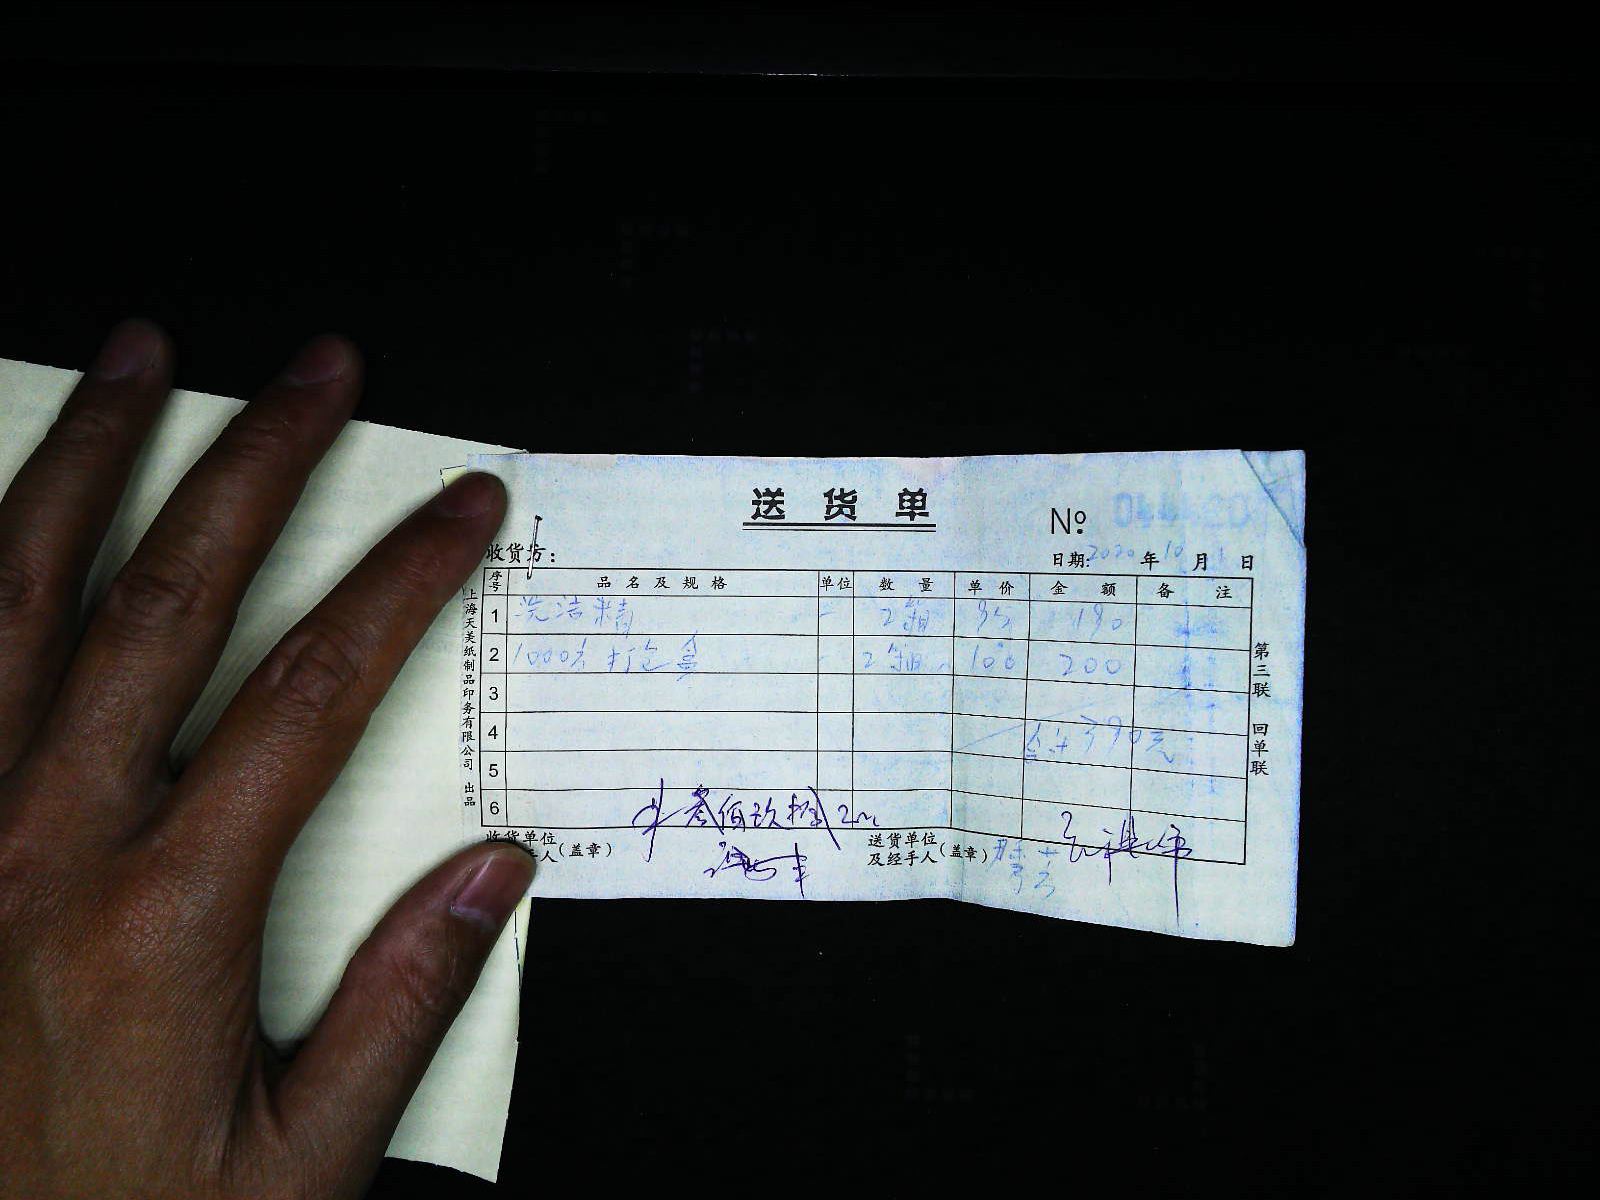 送货单
№
收货方：
日期:2020年10月1日
序号 品名及规格 单位 数量 单价 金额 备注
1 洗洁精 2箱 95 190
2 1000# 打包盒 2箱 100 200
3
4 合计390元
5
6 叁佰玖拾
收货单位
手人(盖章)
送货单位
及经手人(盖章)
上海天美纸制品印务有限公司 出品
第三联 回单联